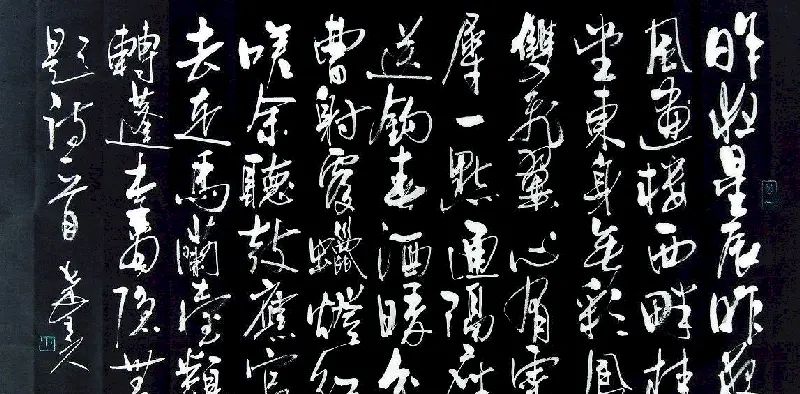 昨夜星辰昨夜
風畫樓西畔桂
堂東身無彩鳳
雙飛翼心有靈
犀一點通隔座
送鈎春酒暖分
曹射覆蠟燈紅
嗟余聽鼓應官
去走馬蘭臺類
轉蓬李商隱無
題詩一首